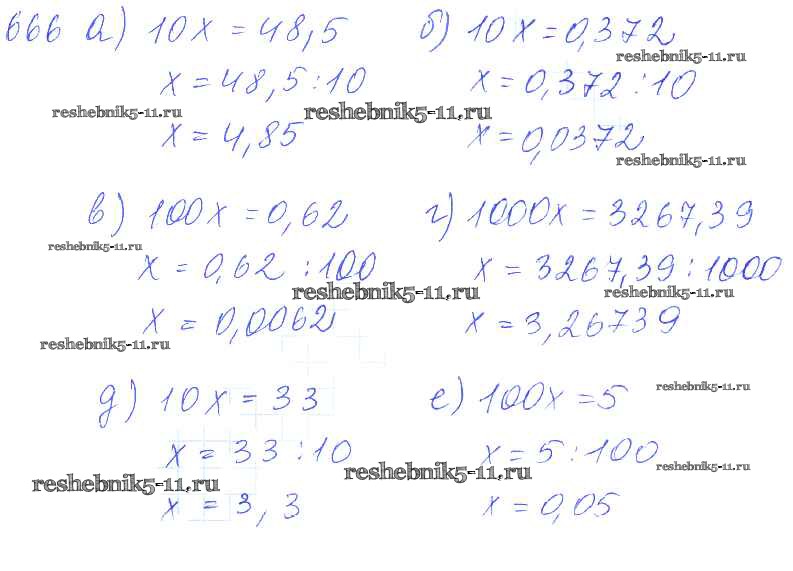 666 а) 10x = 48,5 б) 10x = 0,372
reshebnik5-11.ru
x = 48,5 : 10 x = 0,372 : 10
reshebnik5-11.ru reshebnik5-11.ru
x = 4,85 x = 0,0372
reshebnik5-11.ru
в) 100x = 0,62 г) 1000x = 3267,39
reshebnik5-11.ru
x = 0,62 : 100 x = 3267,39 : 1000
reshebnik5-11.ru reshebnik5-11.ru
x = 0,0062 x = 3,26739
reshebnik5-11.ru
д) 10x = 33 е) 100x = 5
reshebnik5-11.ru
x = 33 : 10 x = 5 : 100
reshebnik5-11.ru reshebnik5-11.ru reshebnik5-11.ru
x = 3,3 x = 0,05